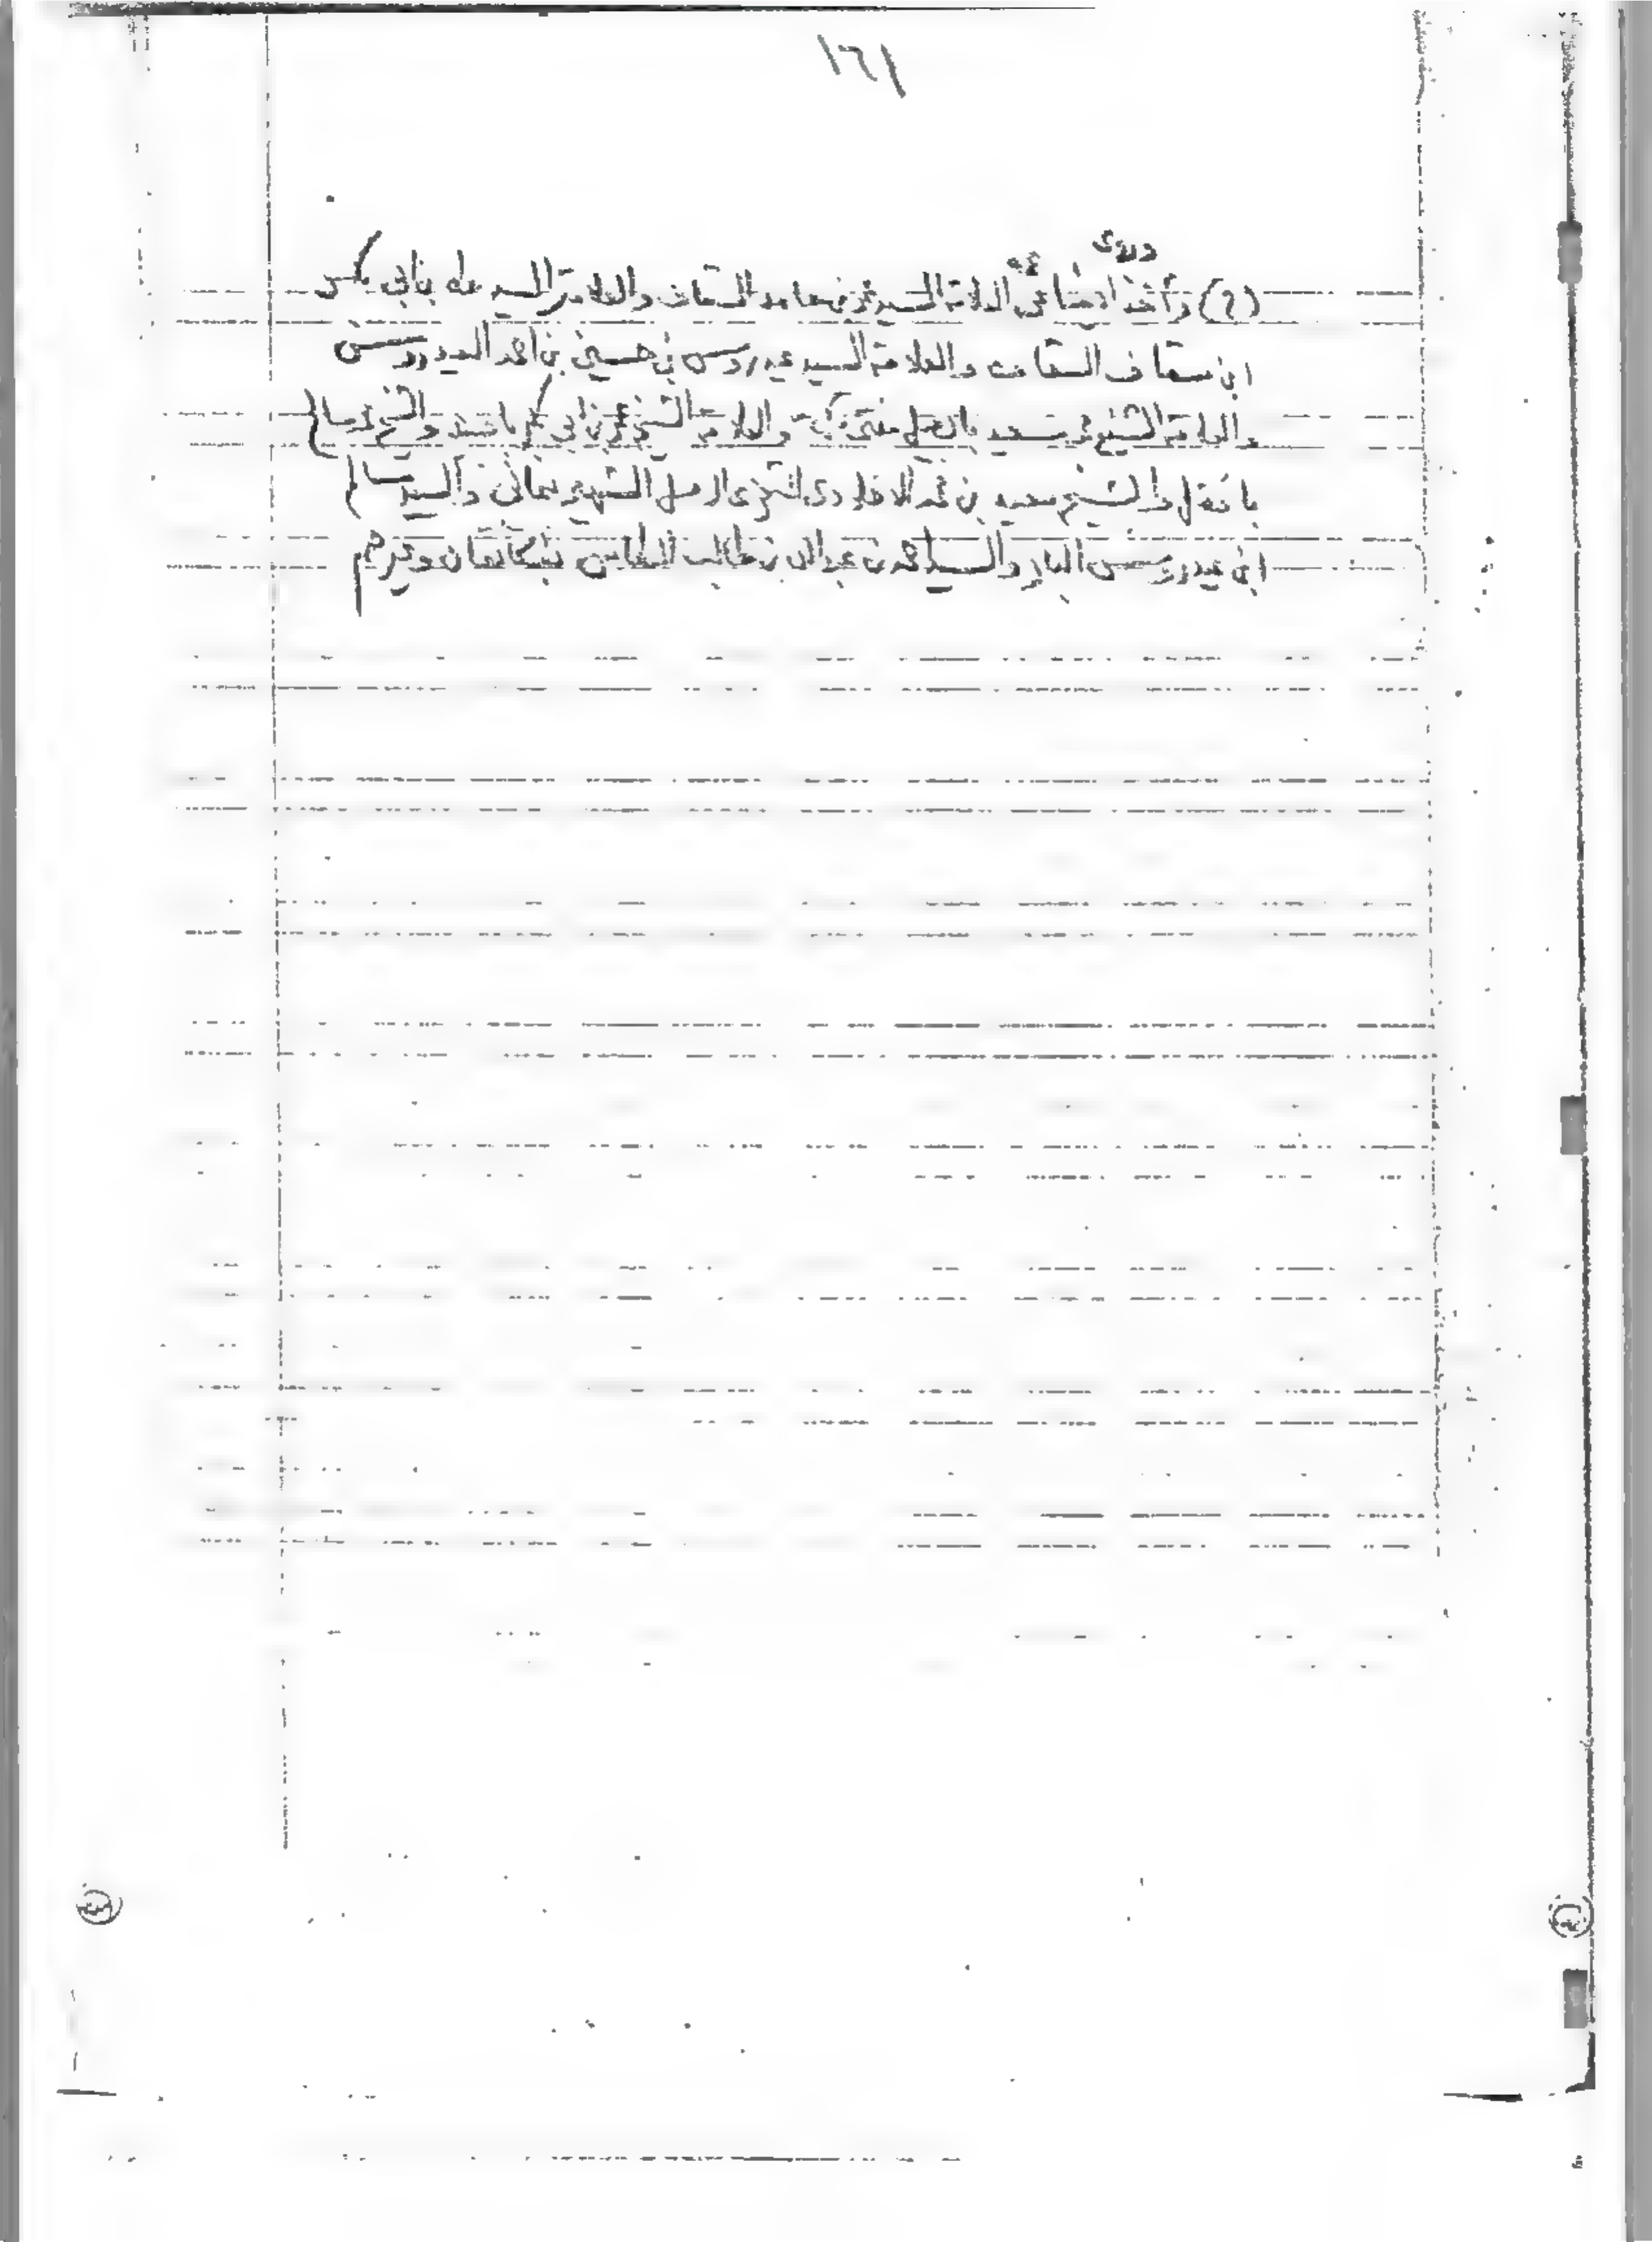 ١٦١
وروى عنه
(٢) وأخذ أيضا عن العلامة السيد عمر بن حامد السقاف والعلامة السيد طه بن أبي بكر
ابن سقاف السقاف والعلامة السيد عيدروس بن حسين بن احمد العيدروس
والعلامة الشيخ محمد سعيد بابصيل مفتي مكة والعلامة الشيخ عمر بن أبي بكر باجنيد والشيخ سالم
بافضل والشيخ سعيد بن محمد الأصل الشهير يماني والسيد سالم
ابن عيدروس البار والسيد احمد بن عبد الله بن طالب العطاس وغيرهم